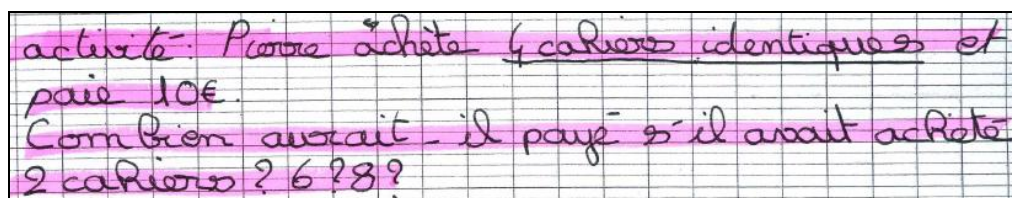 activité : Pierre achète 4 cahiers identiques et
paie 10€.
Combien aurait-il payé s'il avait acheté
2 cahiers ? 6 ? 8 ?